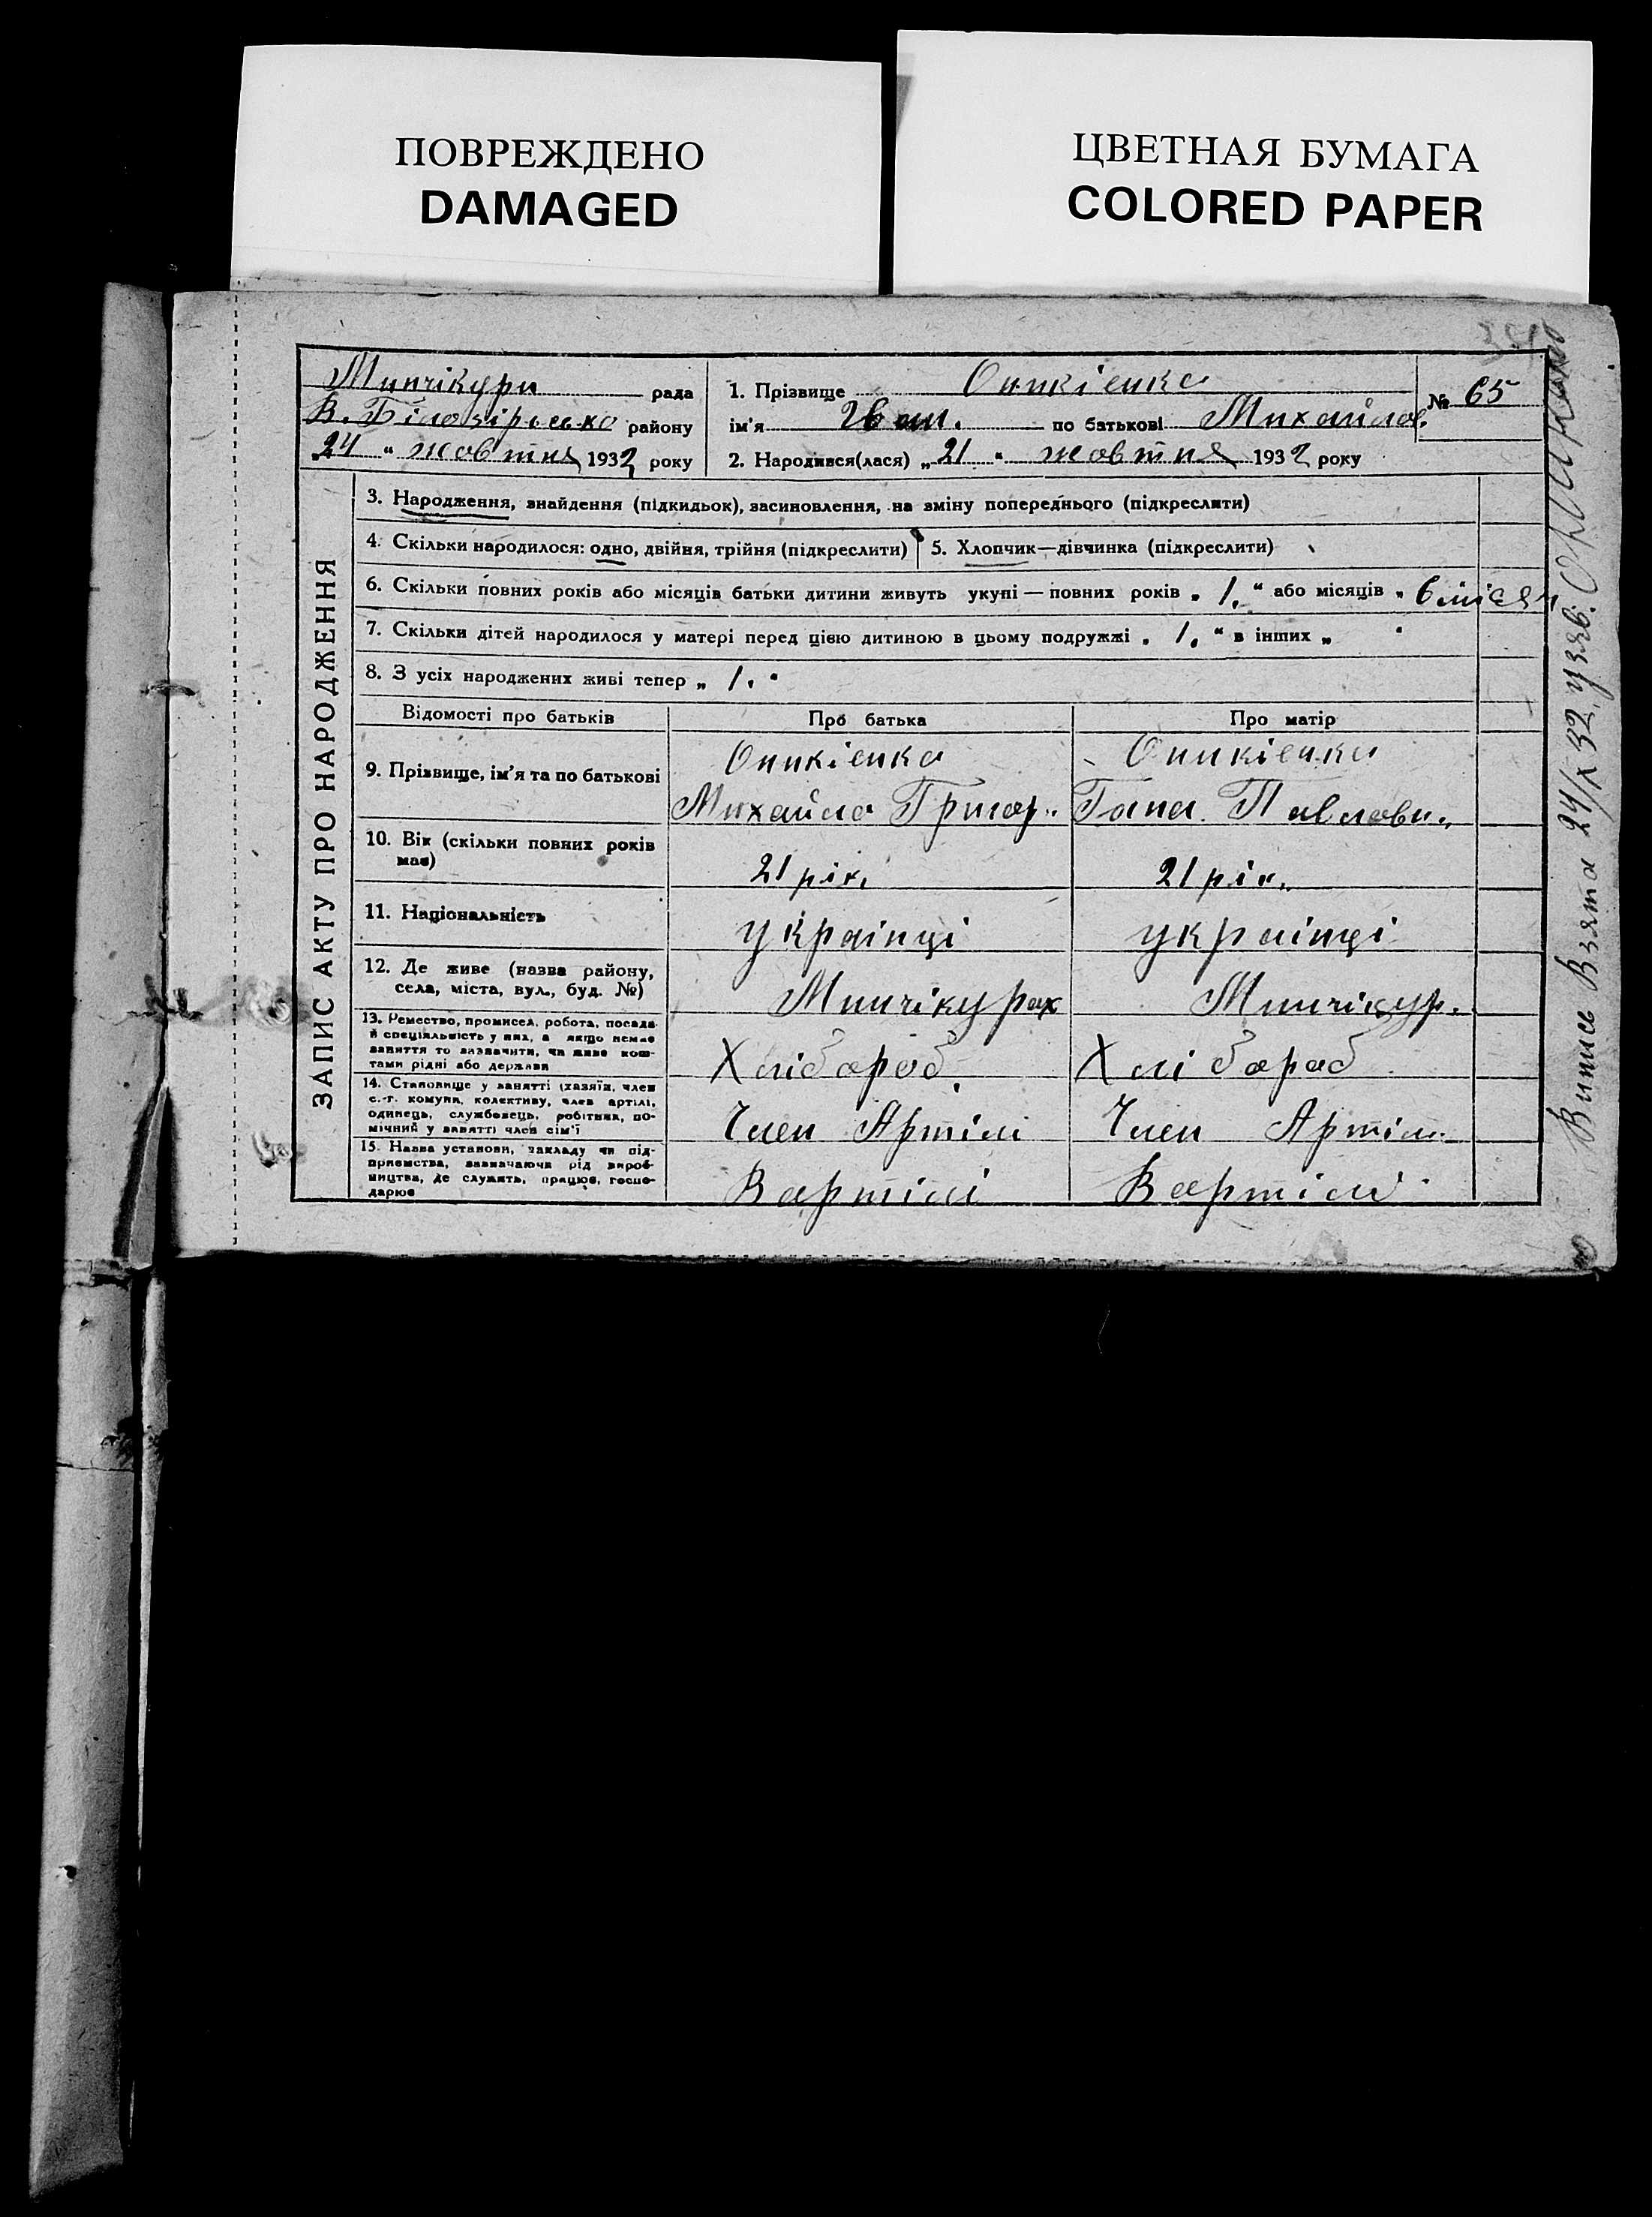 ПОВРЕЖДЕНО
DAMAGED
ЦВЕТНАЯ БУМАГА
COLORED PAPER
Минчікури рада
В. Білозірсько району
24 " жовтня 1932 року
1. Прізвище Оникіенко
ім'я Іван. по батькові Михайлов.
№ 65
2. Народився(лася) „ 21 " жовтня 1932 року
ЗАПИС АКТУ ПРО НАРОДЖЕННЯ
3. Народження, знайдення (підкидьок), засиновлення, на зміну попереднього (підкреслити)
4. Скільки народилося: одно, двійня, трійня (підкреслити)
5. Хлопчик—дівчинка (підкреслити)
6. Скільки повних років або місяців батьки дитини живуть укупі — повних років „ 1. " або місяців „ 6 місяц
7. Скільки дітей народилося у матері перед цією дитиною в цьому подружжі „ 1. " в інших „
8. З усіх народжених живі тепер „ 1. "
Відомості про батьків
Про батька
Про матір
9. Прізвище, ім'я та по батькові
Оникіенко
Михайло Григор..
Оникіенко
Гана Павлови..
10. Вік (скільки повних років
має)
21 рік.
21 рік.
11. Національність
українці
українці
12. Де живе (назва району,
села, міста, вул., буд. №)
Минчікурах
Минчікур.
13. Ремество, промисел, робота, посада
й спеціяльність у них, а якщо немає
заняття то зазначити, чи живе кош-
тами рідні або держави
Хлібороб.
Хлібороб
14. Становище у занятті (хазяїн, член
с.-г. комуни, колективу, член артілі,
одинець, службовець, робітник, по-
мічний у занятті член сім'ї
Член Артілі
Член Артіли
15. Назва установи, закладу чи під-
приємства, зазначаючи рід вироб-
ництва, де служить, працює, госпо-
дарює
Вартілі
Вартілі
Випись Взята 24/X 32 узяв.